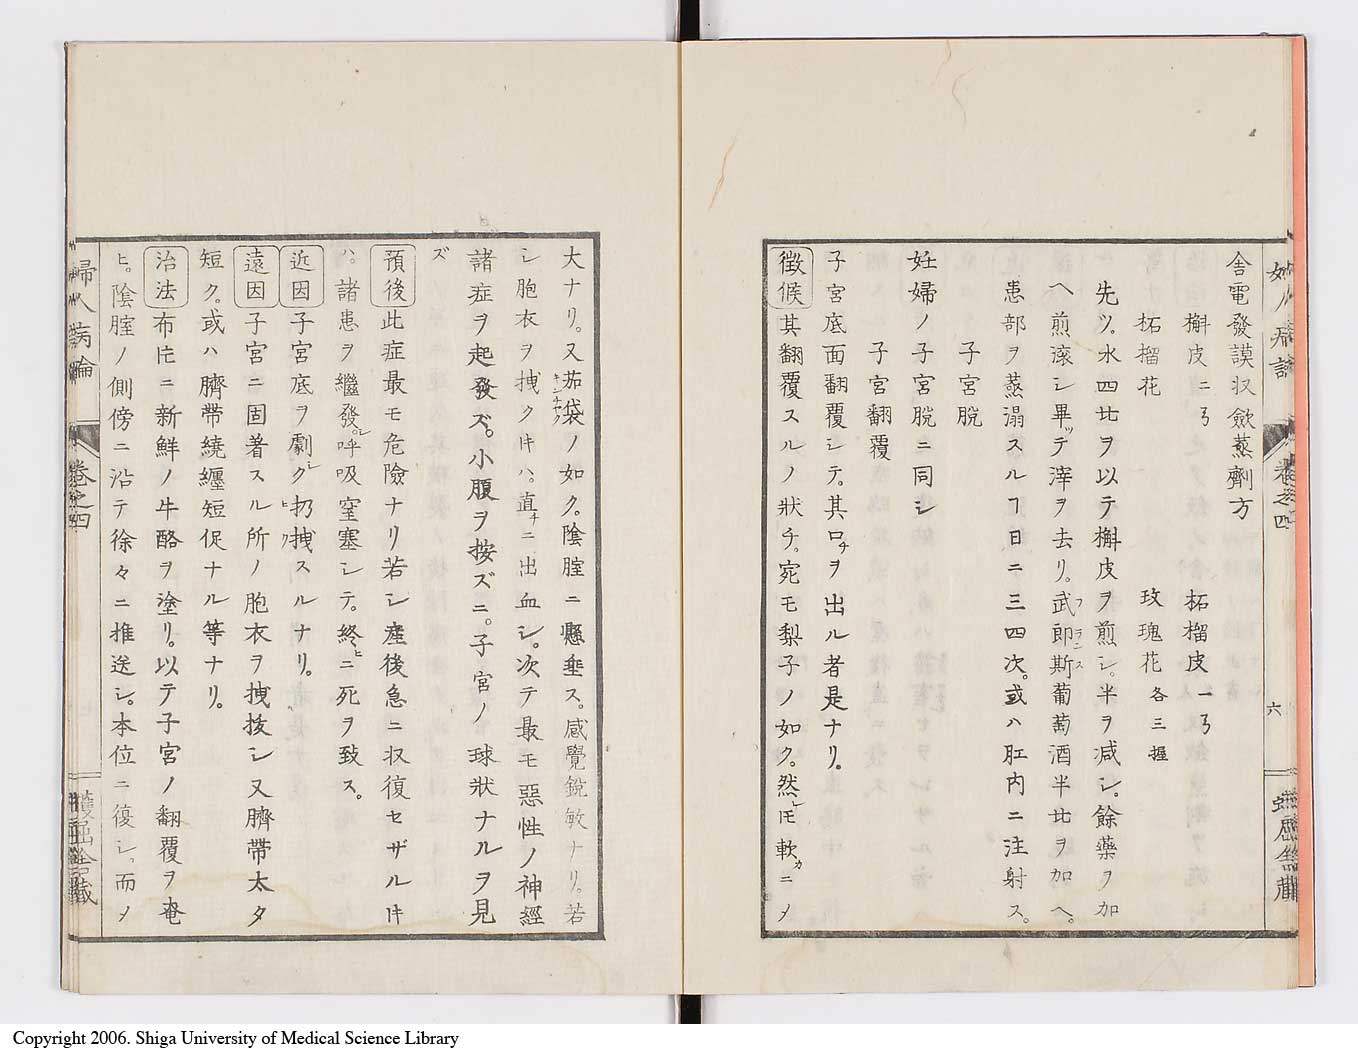 舎電發謨収斂蒸劑方
槲皮二ㄢ 柘榴皮一ㄢ
柘榴花 玫瑰花各三握
先ツ。水四比ヲ以テ槲皮ヲ煎シ。半ヲ减シ。餘藥ヲ加
ヘ煎滚シ畢ッテ滓ヲ去リ。武郎斯葡萄酒半比ヲ加ヘ。
患部ヲ蒸溻スルヿ日ニ三四次。或ハ肛内ニ注射ス。
子宮脱
妊婦ノ子宮脱ニ同シ
子宮翻覆
子宮底面翻覆シテ。其口チヲ出ル者是ナリ。
徴候 其翻覆スルノ狀チ。宛モ梨子ノ如ク。然レ𪜈軟カニメ
卷之四
六
大ナリ。又茄袋ノ如ク。陰腟ニ懸垂ス。感覺銳敏ナリ。若
シ胞衣ヲ拽クㇳキハ。直チニ出血シ。次テ最モ惡性ノ神經
諸症ヲ起發ズ。小腹ヲ按ズニ。子宮ノ球狀ナルヲ見
ズ
預後 此症最モ危險ナリ若シ産後急ニ収復セザルㇳキ
ハ。諸患ヲ繼發シ。呼吸窒塞シテ。終ヒニ死ヲ致ス。
近因 子宮底ヲ劇シク扔ヒ拽クスルナリ。
遠因 子宮ニ固著スル所ノ胞衣ヲ拽拔シ又臍帶太タ
短ク。或ハ臍帶繞纒短促ナル等ナリ。
治法 布片ニ新鮮ノ牛酪ヲ塗リ。以テ子宮ノ翻覆ヲ奄
ヒ。陰腟ノ側傍ニ沿テ徐々ニ推送シ。本位ニ復シ。而メ
婦人病論
卷之四
Copyright 2006. Shiga University of Medical Science Library